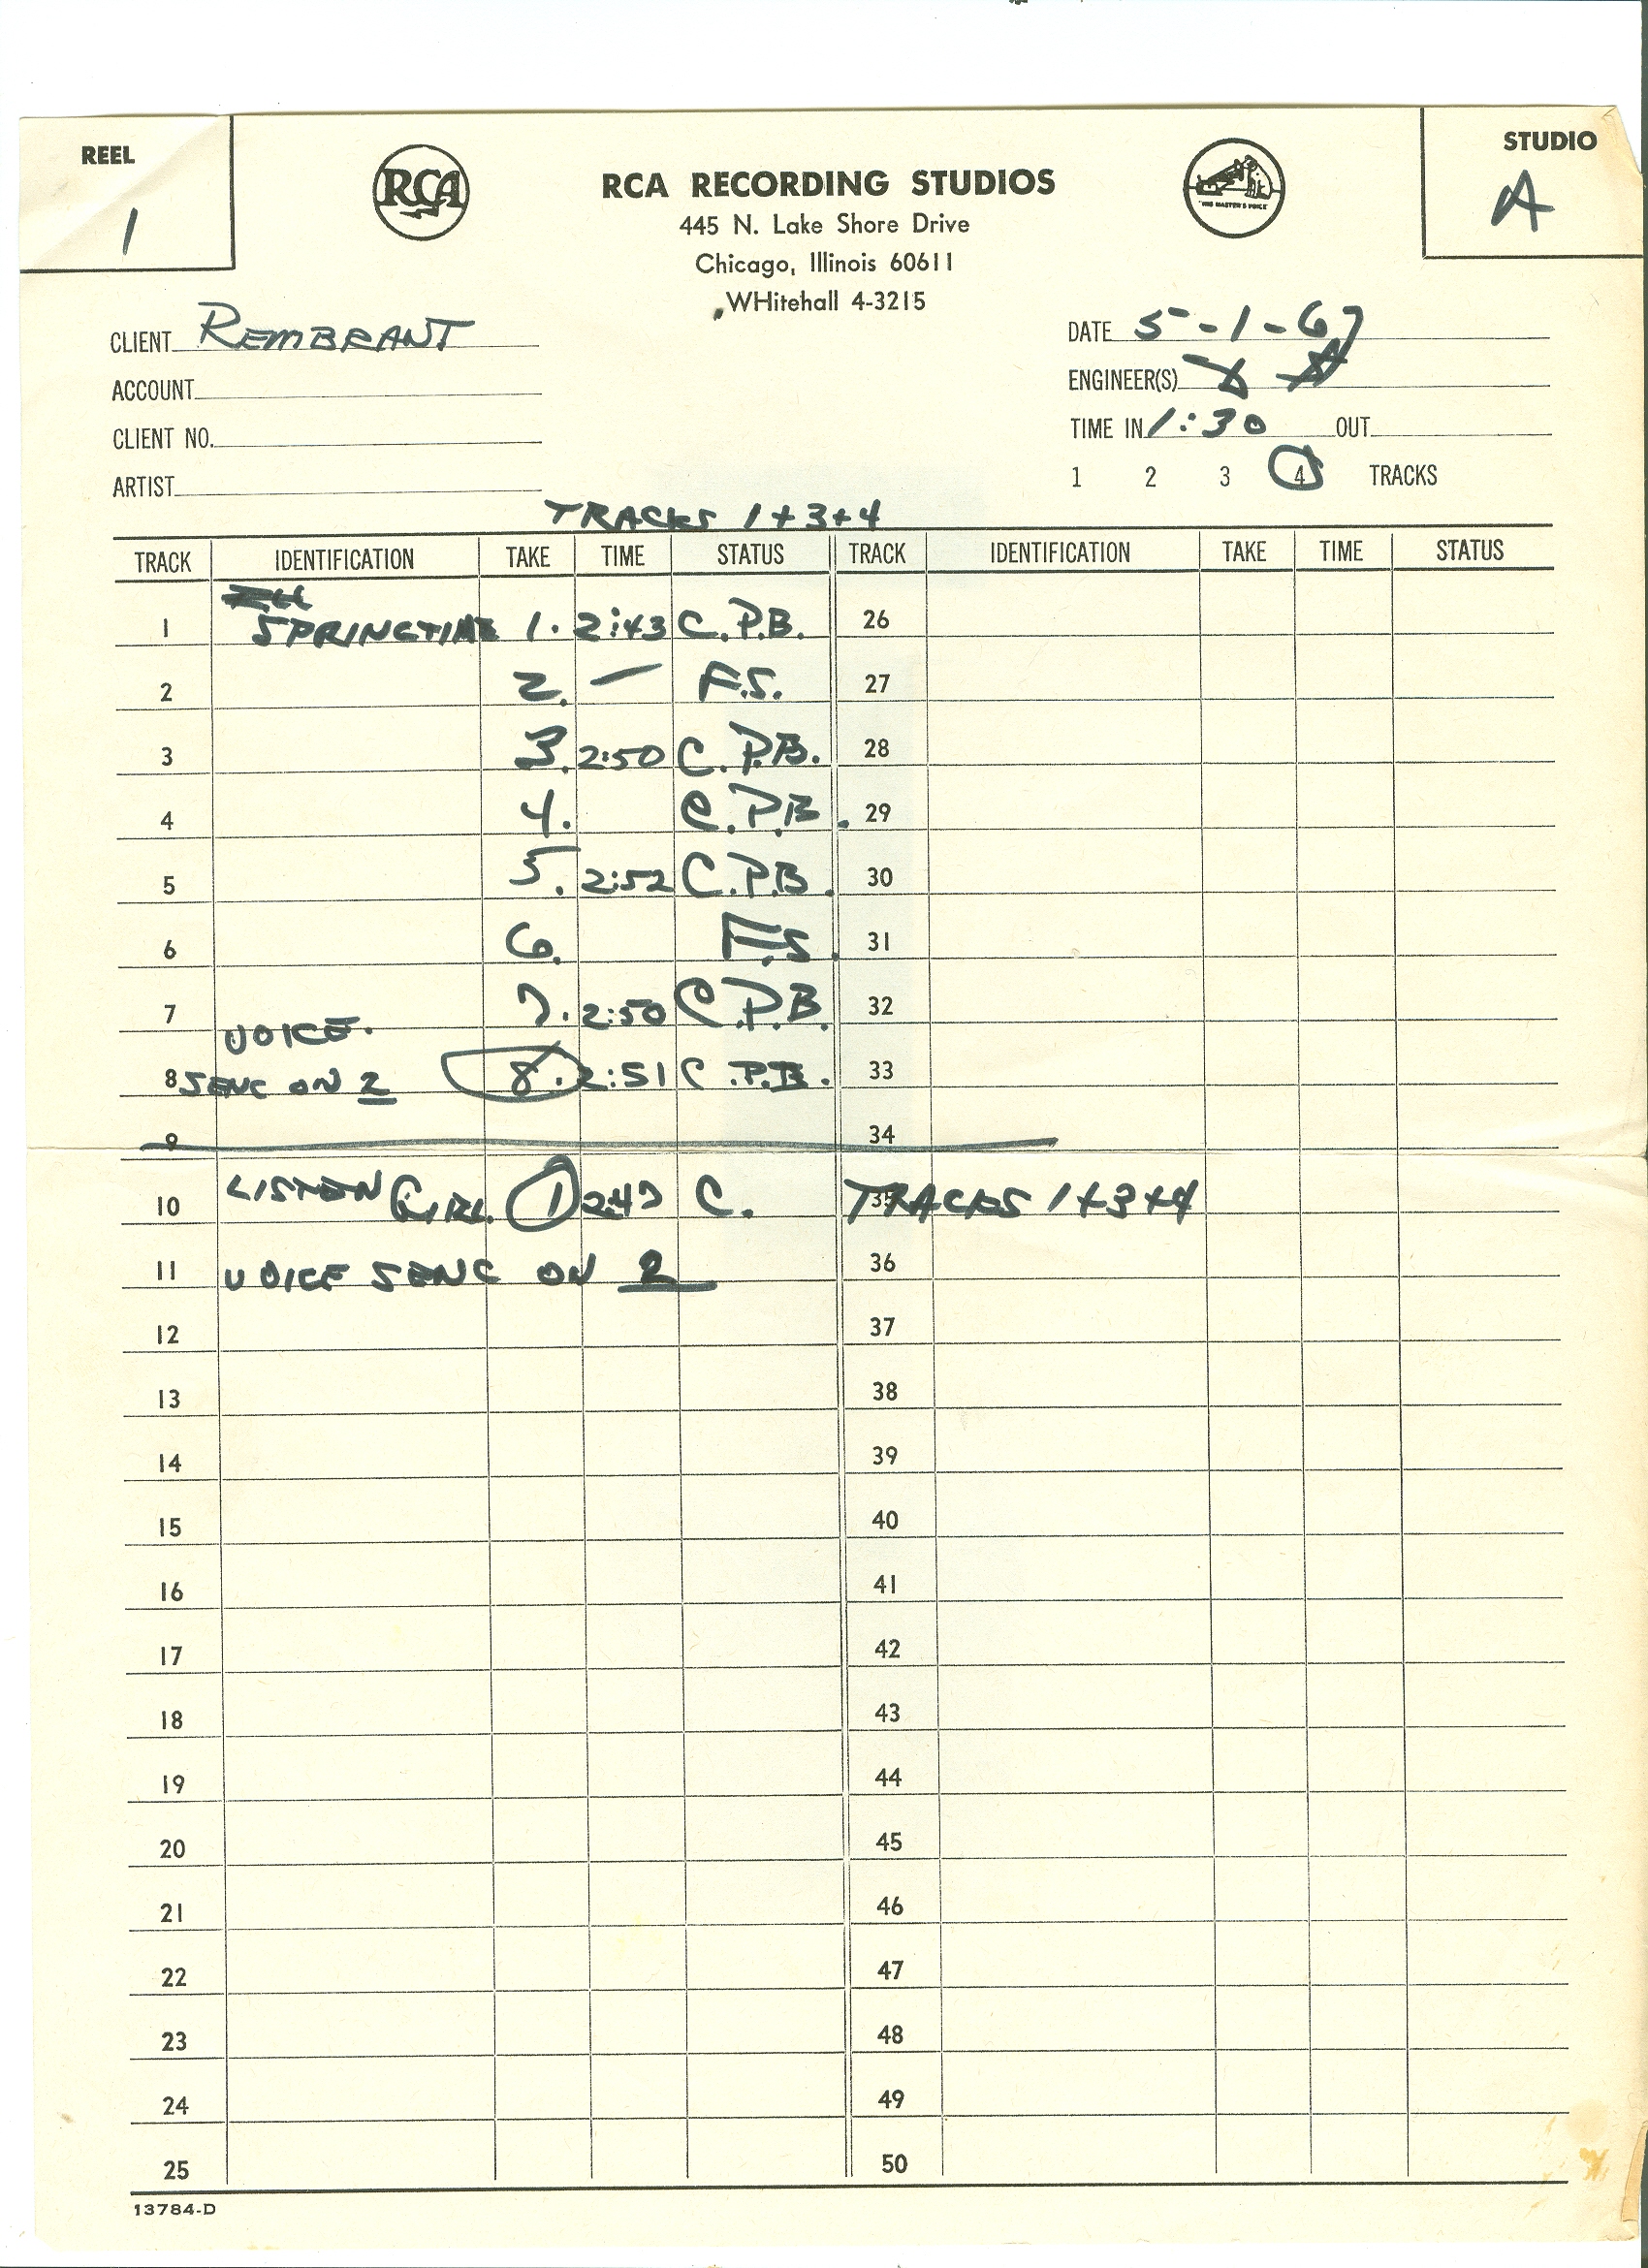 REEL
1
RCA
RCA RECORDING STUDIOS
445 N. Lake Shore Drive
Chicago, Illinois 60611
WHitehall 4-3215
"HIS MASTER'S VOICE"
STUDIO
A
CLIENT REMBRANT
ACCOUNT
CLIENT NO.
ARTIST
DATE 5-1-67
ENGINEER(S)
TIME IN 1:30 OUT
1 2 3 4 TRACKS
TRACKS 1+3+4
TRACK IDENTIFICATION TAKE TIME STATUS TRACK IDENTIFICATION TAKE TIME STATUS
1 SPRINGTIME 1. 2:43 C.P.B. 26
2 2. — F.S. 27
3 3. 2:50 C.P.B. 28
4 4. C.P.B. 29
5 5. 2:52 C.P.B. 30
6 6. F.S. 31
7 7. 2:50 C.P.B. 32
VOICE.
8 SENC ON 2 8. 2:51 C.P.B. 33
9 34
10 LISTEN GIRL 1 2:47 C. 35 TRACKS 1+3+4
11 VOICE SENC ON 2 36
12 37
13 38
14 39
15 40
16 41
17 42
18 43
19 44
20 45
21 46
22 47
23 48
24 49
25 50
13784-D